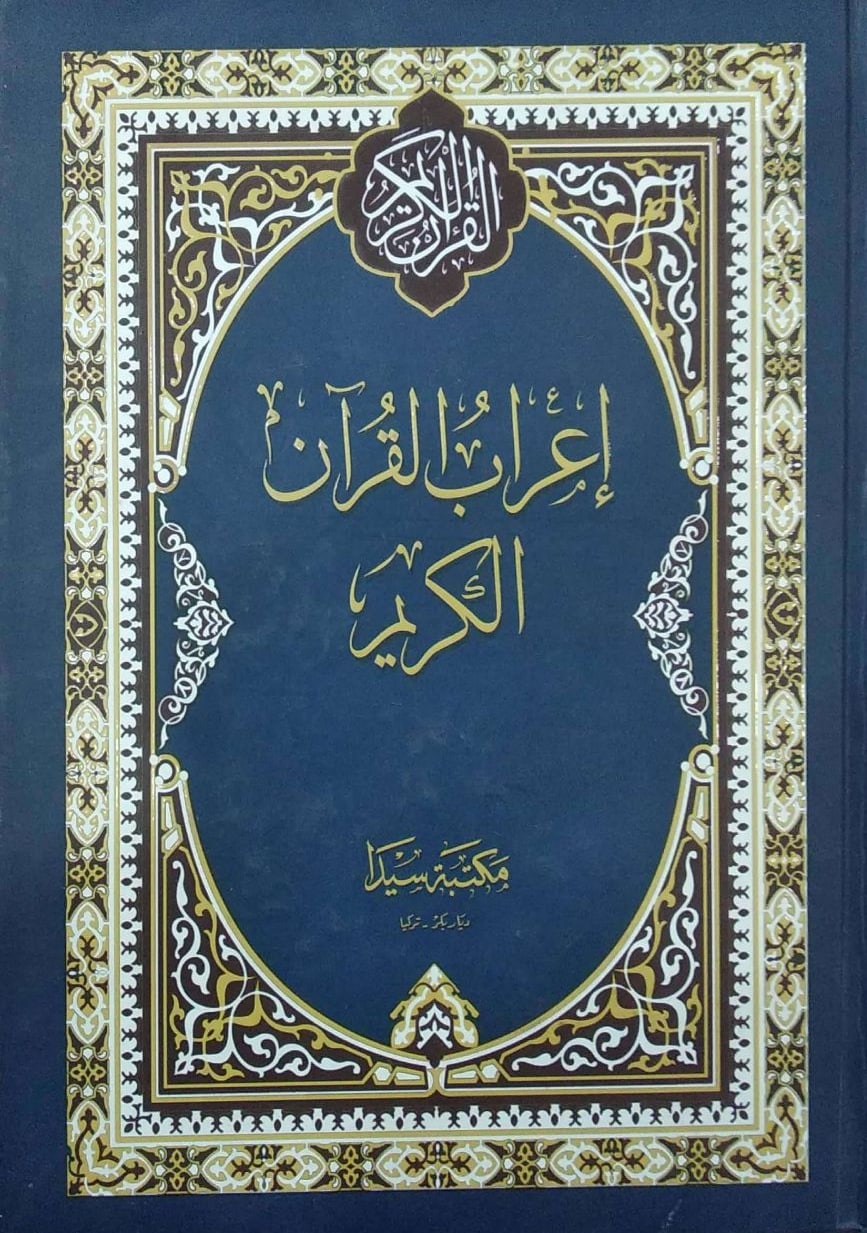 القرآن الكريم
إعرابُ القُرآن
الكريم
مكتبة سيدا
ديار بكر - تركيا